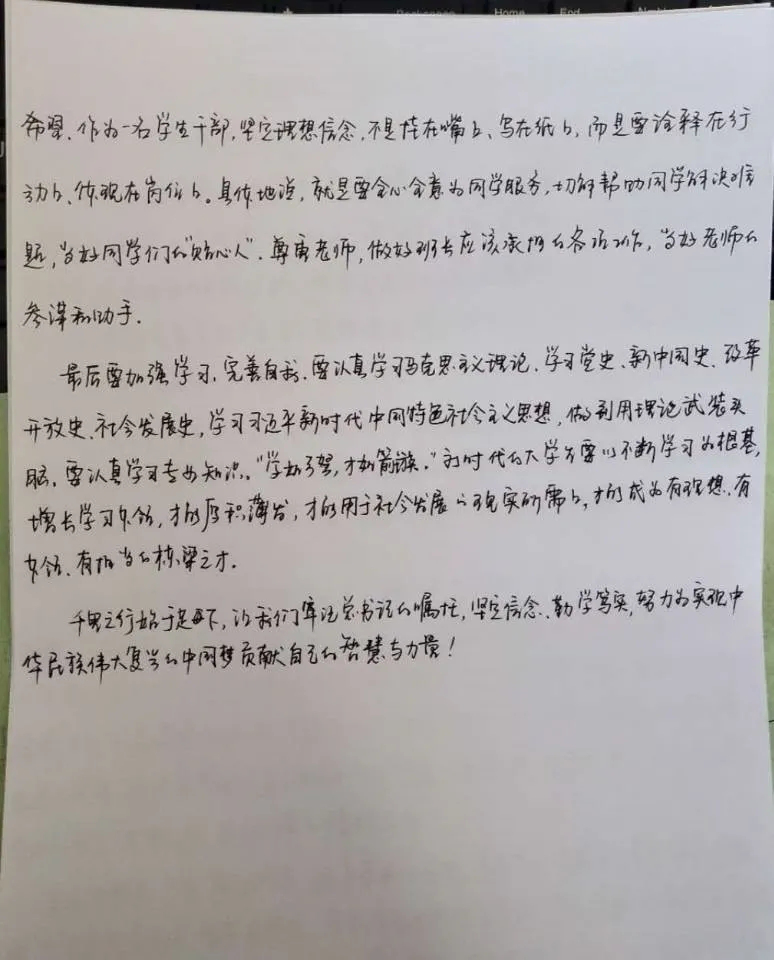 Backspace
Home
End
希望、作为一名学生干部,坚定理想信念,不是挂在嘴上、写在纸上,而是要诠释在行
动上、体现在岗位上。具体地说,就是要全心全意为同学服务,切实帮助同学解决难
题,当好同学们的“贴心人”.尊重老师,做好班长应该承担的各项工作,当好老师的
参谋和助手.
最后要加强学习,完善自我.要认真学习马克思主义理论、学习党史、新中国史、改革
开放史、社会发展史,学习习近平新时代中国特色社会主义思想,做到用理论武装头
脑,要认真学习专业知识。“学如弓弩,才如箭簇。”新时代的大学生要以不断学习为根基,
增长学习本领,才能厚积薄发,才能用于社会发展的现实所需上,才能成为有理想、有
本领、有担当的栋梁之才.
千里之行始于足下,让我们牢记总书记的嘱托,坚定信念、勤学笃实,努力为实现中
华民族伟大复兴的中国梦贡献自己的智慧与力量!